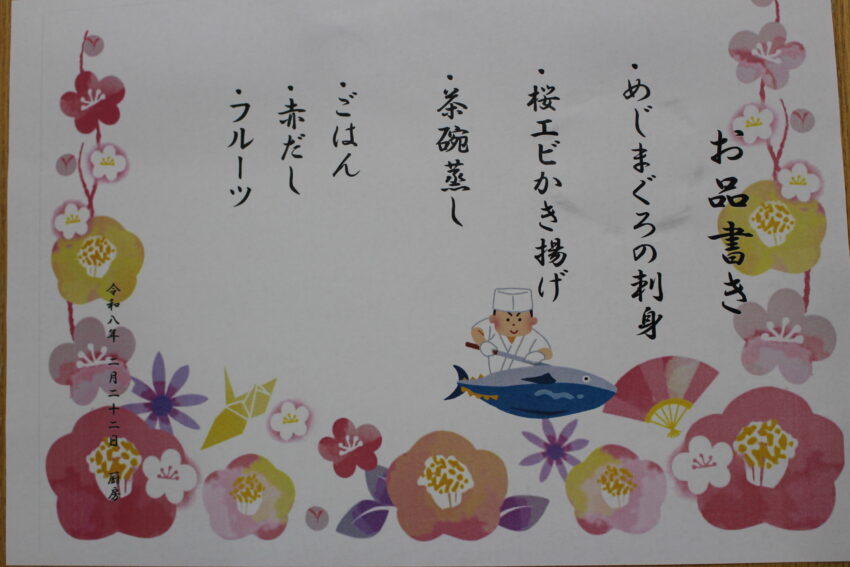 お品書き
・めじまぐろの刺身
・桜エビかき揚げ
・茶碗蒸し
・ごはん
・赤だし
・フルーツ
令和八年 二月二十二日 厨房